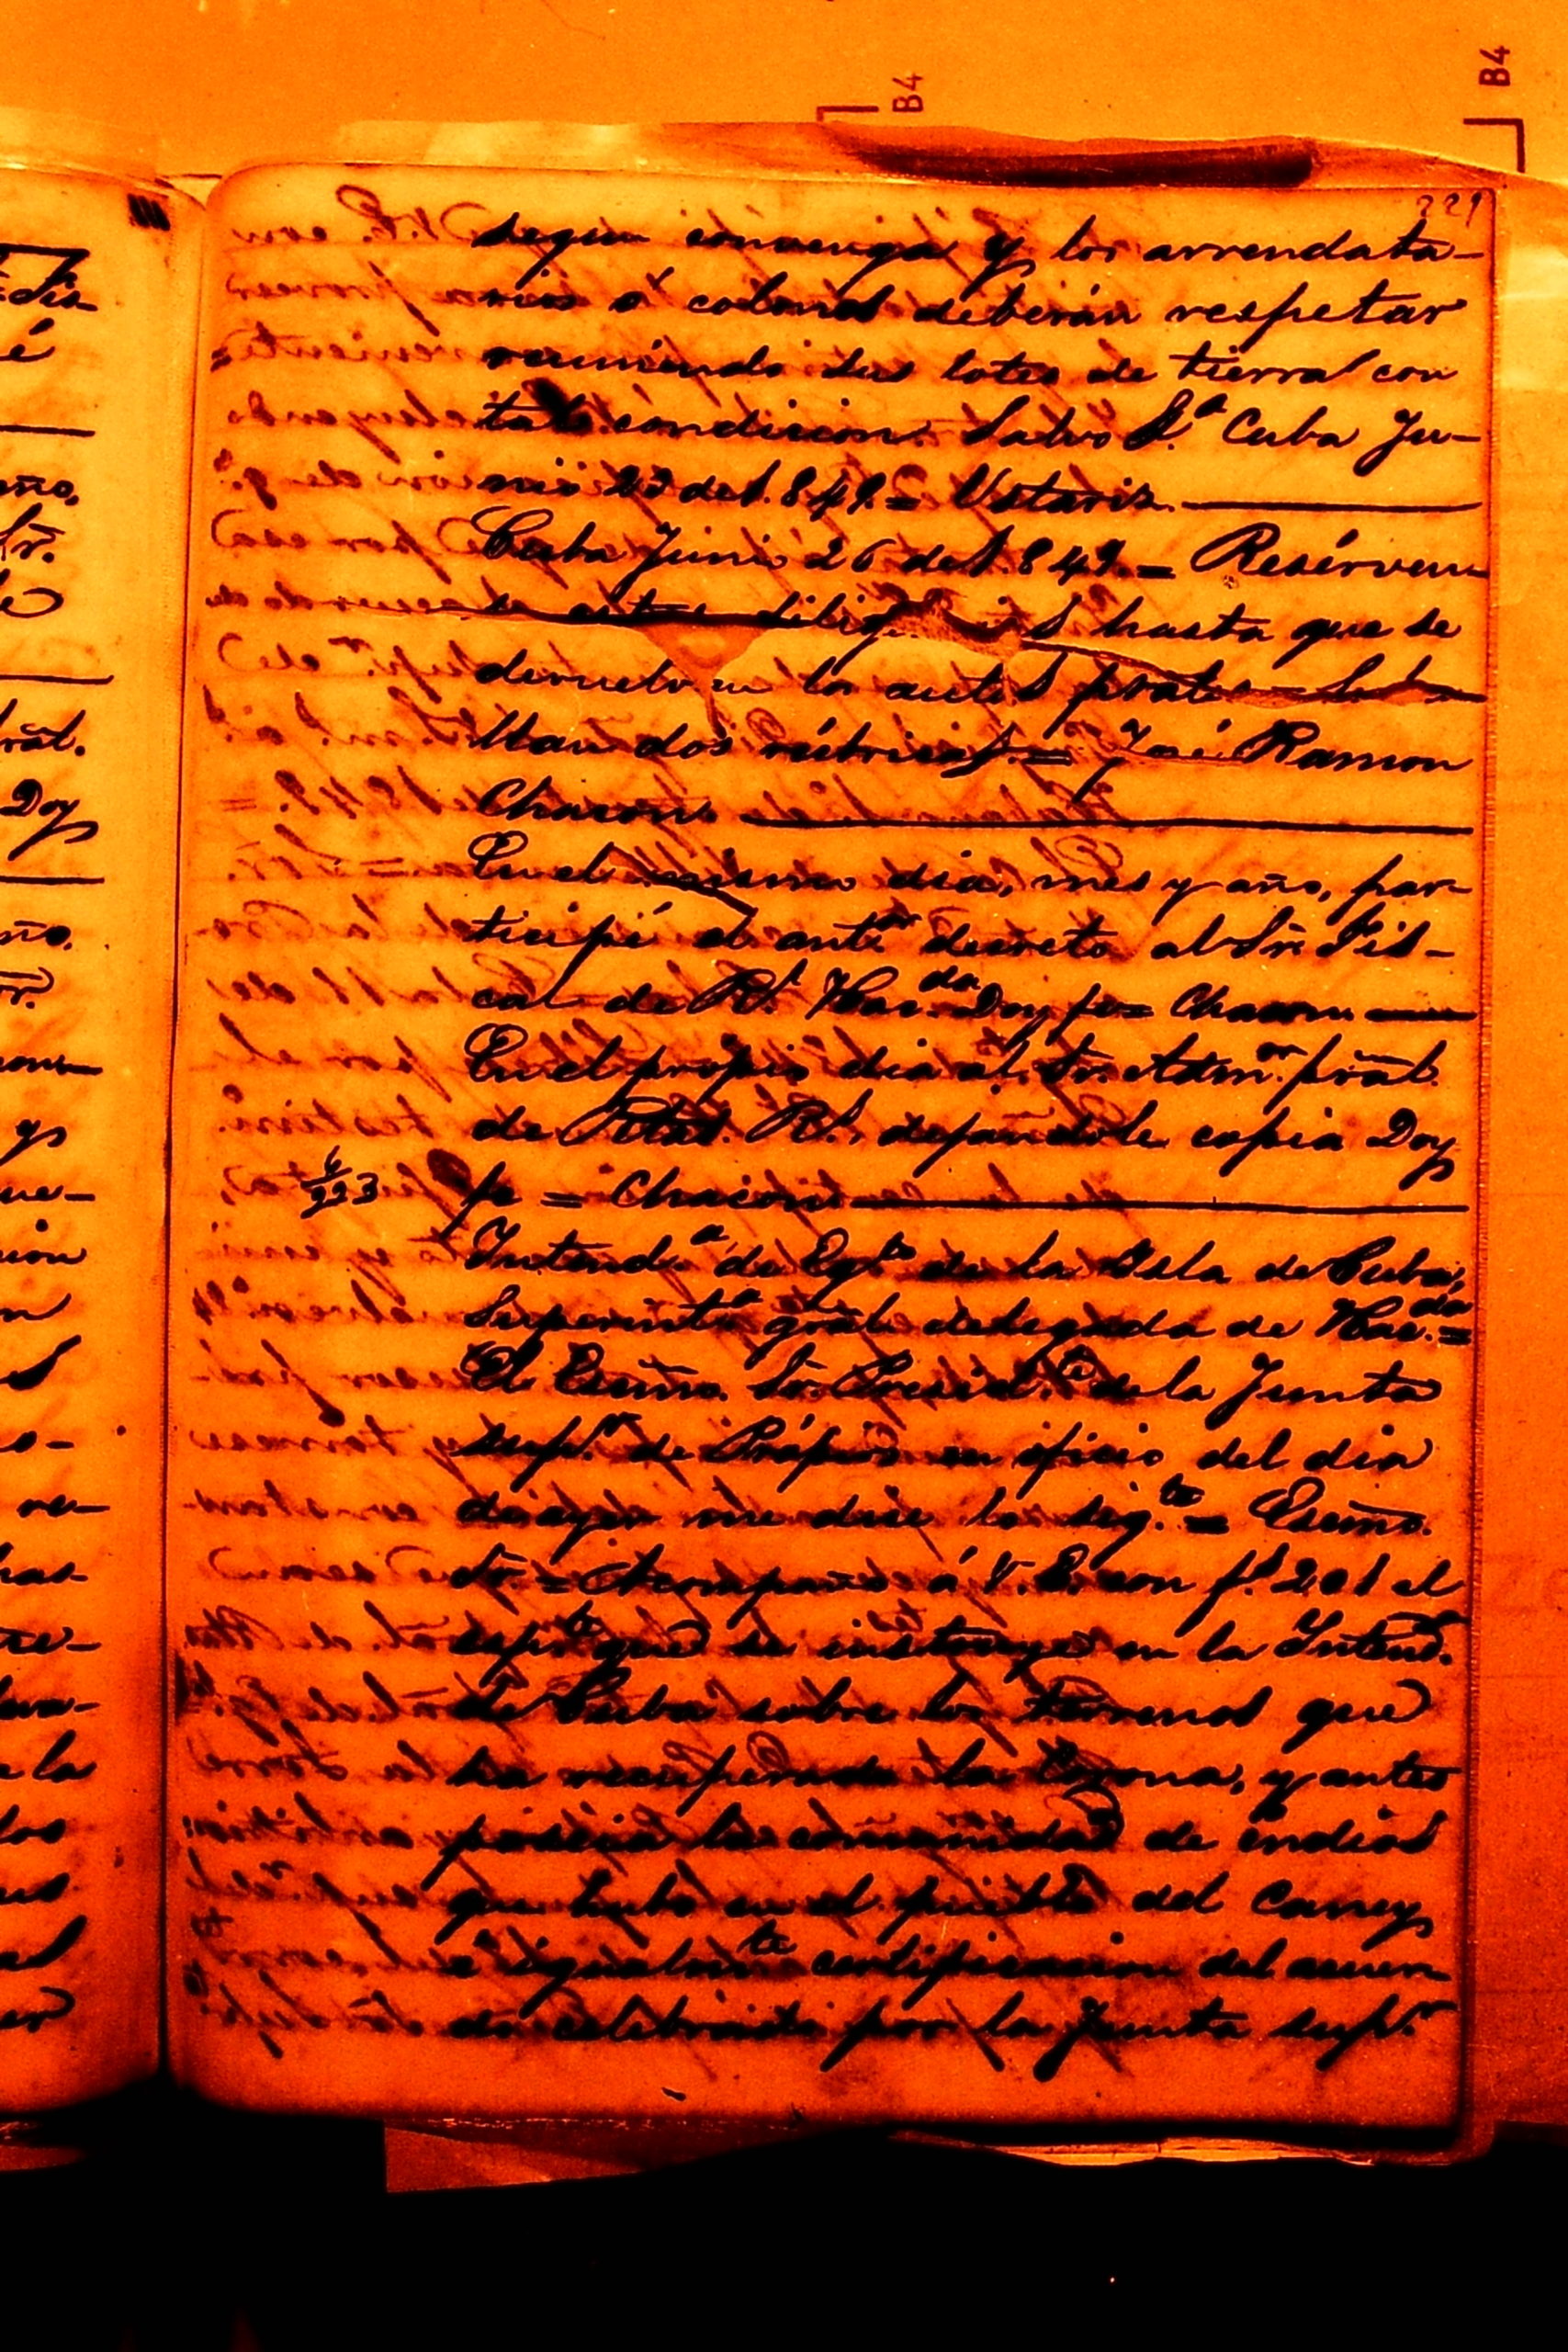 B4
B4
221
segun convenga y los arrendata-
rios ó colonos deberán respetar
reuniendo sus lotes de tierra con
tal condicion. Salvo &.ª Cuba Ju-
nio 23 de 1.849. = Ustariz.
Cuba Junio 26 de 1.849. = Resérven-
se estas dilig hasta que se
devuelvan los autos prales =
llan dos rúbricas. = José Ramon
Chacon.
En el mismo dia, mes y año, par-
ticipé el antᵒʳ decreto al Sr. Fis-
cal de Rˡ. Hac.ᵈᵃ Doy fe = Chacon
En el propio dia al Sr. Adm.ᵒʳ prãl.
de Rtas. Rˢ. dejandole copia Doy
fe = Chacon
6/223
Intend.ª de Egᵗᵒ de la Isla de Cuba,
Superintª grãl delegada de Hac.ᵈᵃ =
El Escmo. Sr. Presid.ᵗᵉ de la Junta
supʳ. de Própios en oficio del dia
de ayer me dice lo sig.ᵗᵉ = Escmo.
Sr. = Acompaño á V. E. con fˢ 201 el
espᵗᵉ que se instruye en la Intendª.
de Cuba sobre los terrenos que
ha recuperado la Corona, y antes
poseia la comunidad de indios
que hubo en el pueblo del Caney
é igualmᵗᵉ certificacion del acuer-
do celebrado por la Junta supʳ.